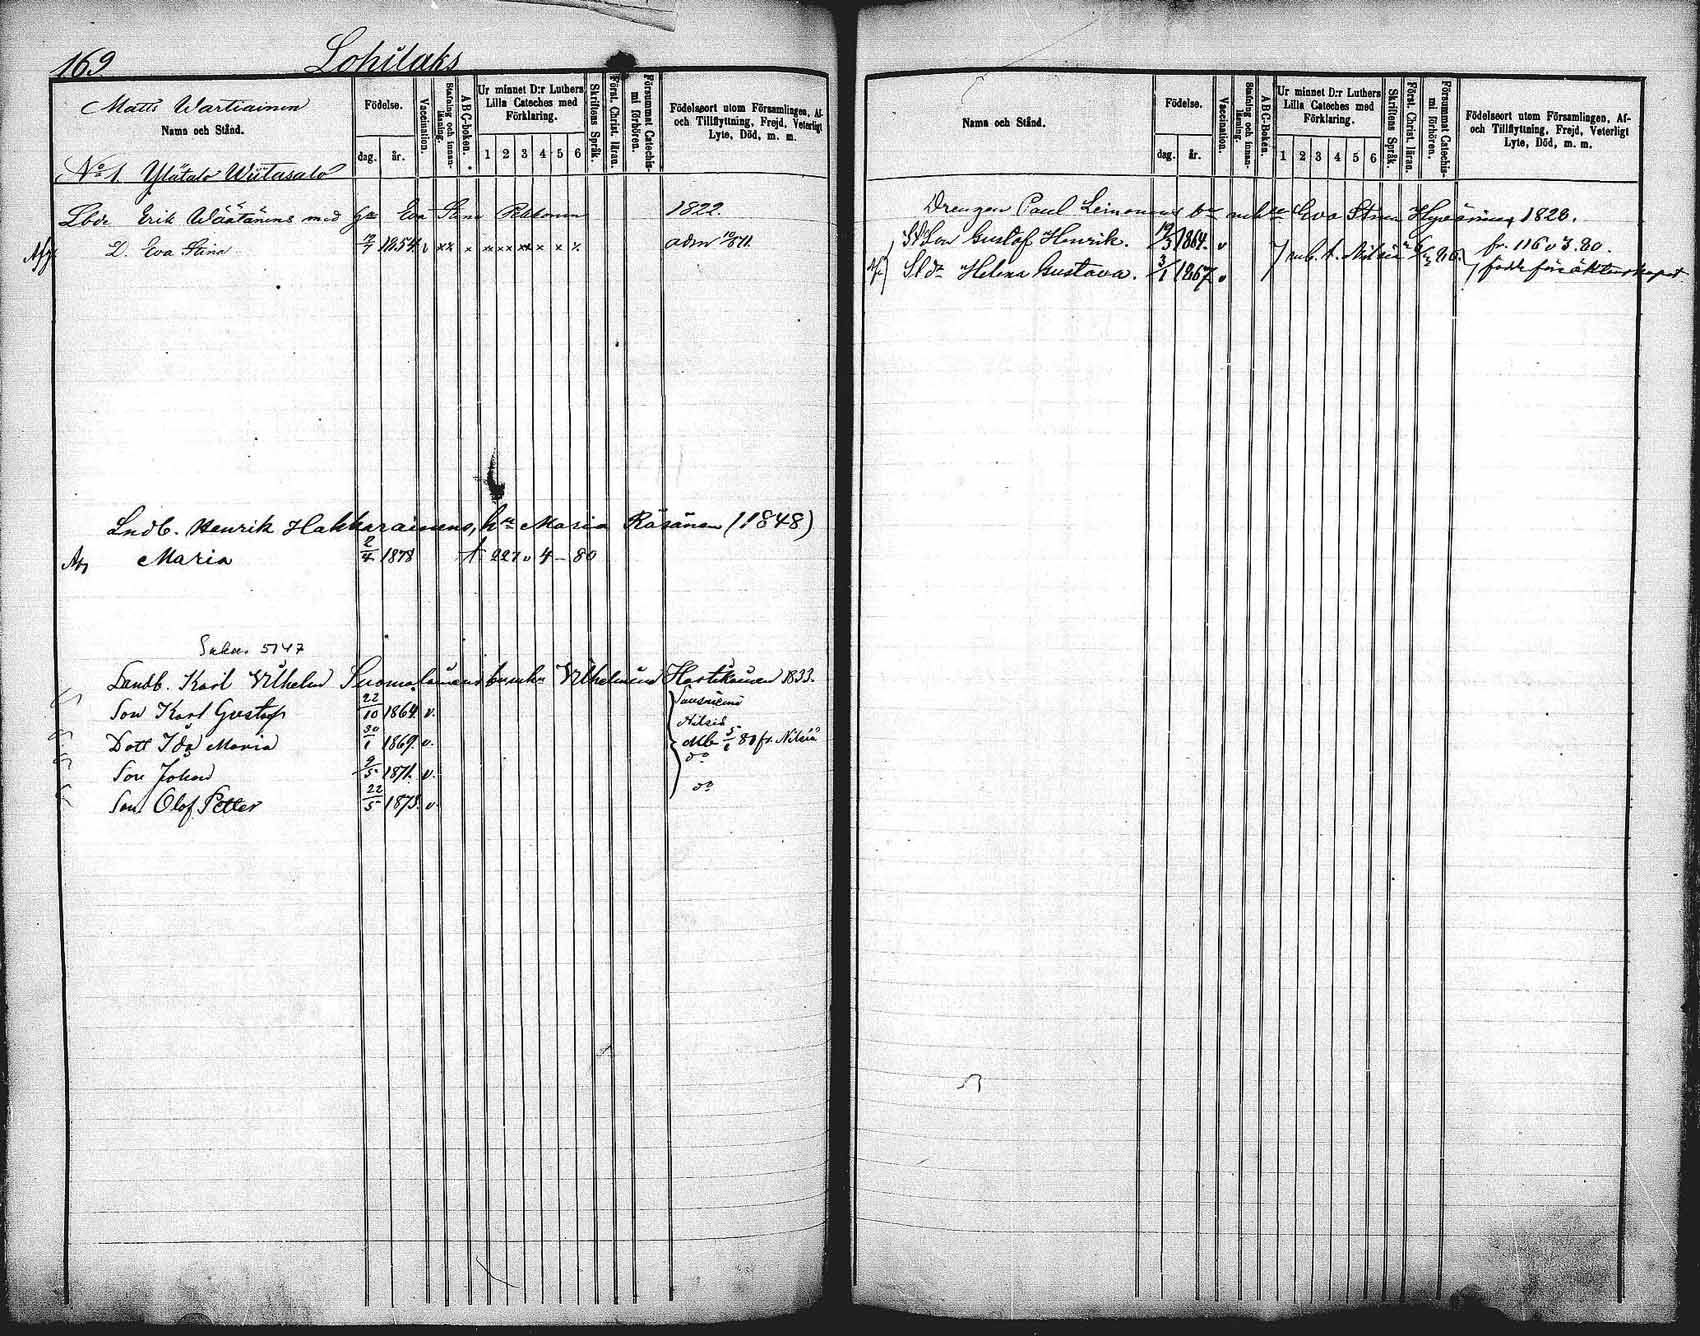 169 Lohilaks
Matts Wartiainen
Namn och Stånd.
Födelse.
dag. år.
Vaccination.
Stafning och innan-läsning.
A B C-boken.
Ur minnet D:r Luthers Lilla Cateches med Förklaring.
1 2 3 4 5 6
Skriftens Språk.
Först. Christ. läran.
Försummat Catechis-mi förhören.
Födelseort utom Församlingen, Af- och Tillflyttning, Frejd, Veterligt Lyte, Död, m. m.
No 1. Ylätalo Wiitasalo
Lbde Erik Wäätänens med Eva Stina Pekkonen 1822.
D. Eva Stina 1854. v xx x x x x x x x adm 71.
Lndb. Henrik Hakkarainens, hu Maria Räsänen (1848)
Maria 2/4 1878 227 v 4 - 80
5747
Landb. Karl Wilhelm Suomalainens Wilhelmina Hartikainen 1833.
Son Karl Gustaf 22/10 1864. v.
Nilsiä
Dott Ida Maria 30/1 1869. v. 80 fr. Nilsiä
Son Johan 9/5 1871. v. do
Son Olof Petter 22/5 1873. v. do
Namn och Stånd.
Födelse.
dag. år.
Vaccination.
Stafning och innan-läsning.
A B C-Boken.
Ur minnet D:r Luthers Lilla Cateches med Förklaring.
1 2 3 4 5 6
Skriftens Språk.
Först. Christ. läran.
Försummat Catechis-mi förhören.
Födelseort utom Församlingen, Af- och Tillflyttning, Frejd, Veterligt Lyte, Död, m. m.
Drengen Paul Leinonens Eva Stina Hyvärinen 1823.
Son Gustaf Henrik. 1864. v fr. 116 v 3. 80.
Helena Gustava. 3/1 1867. v Nilsiä